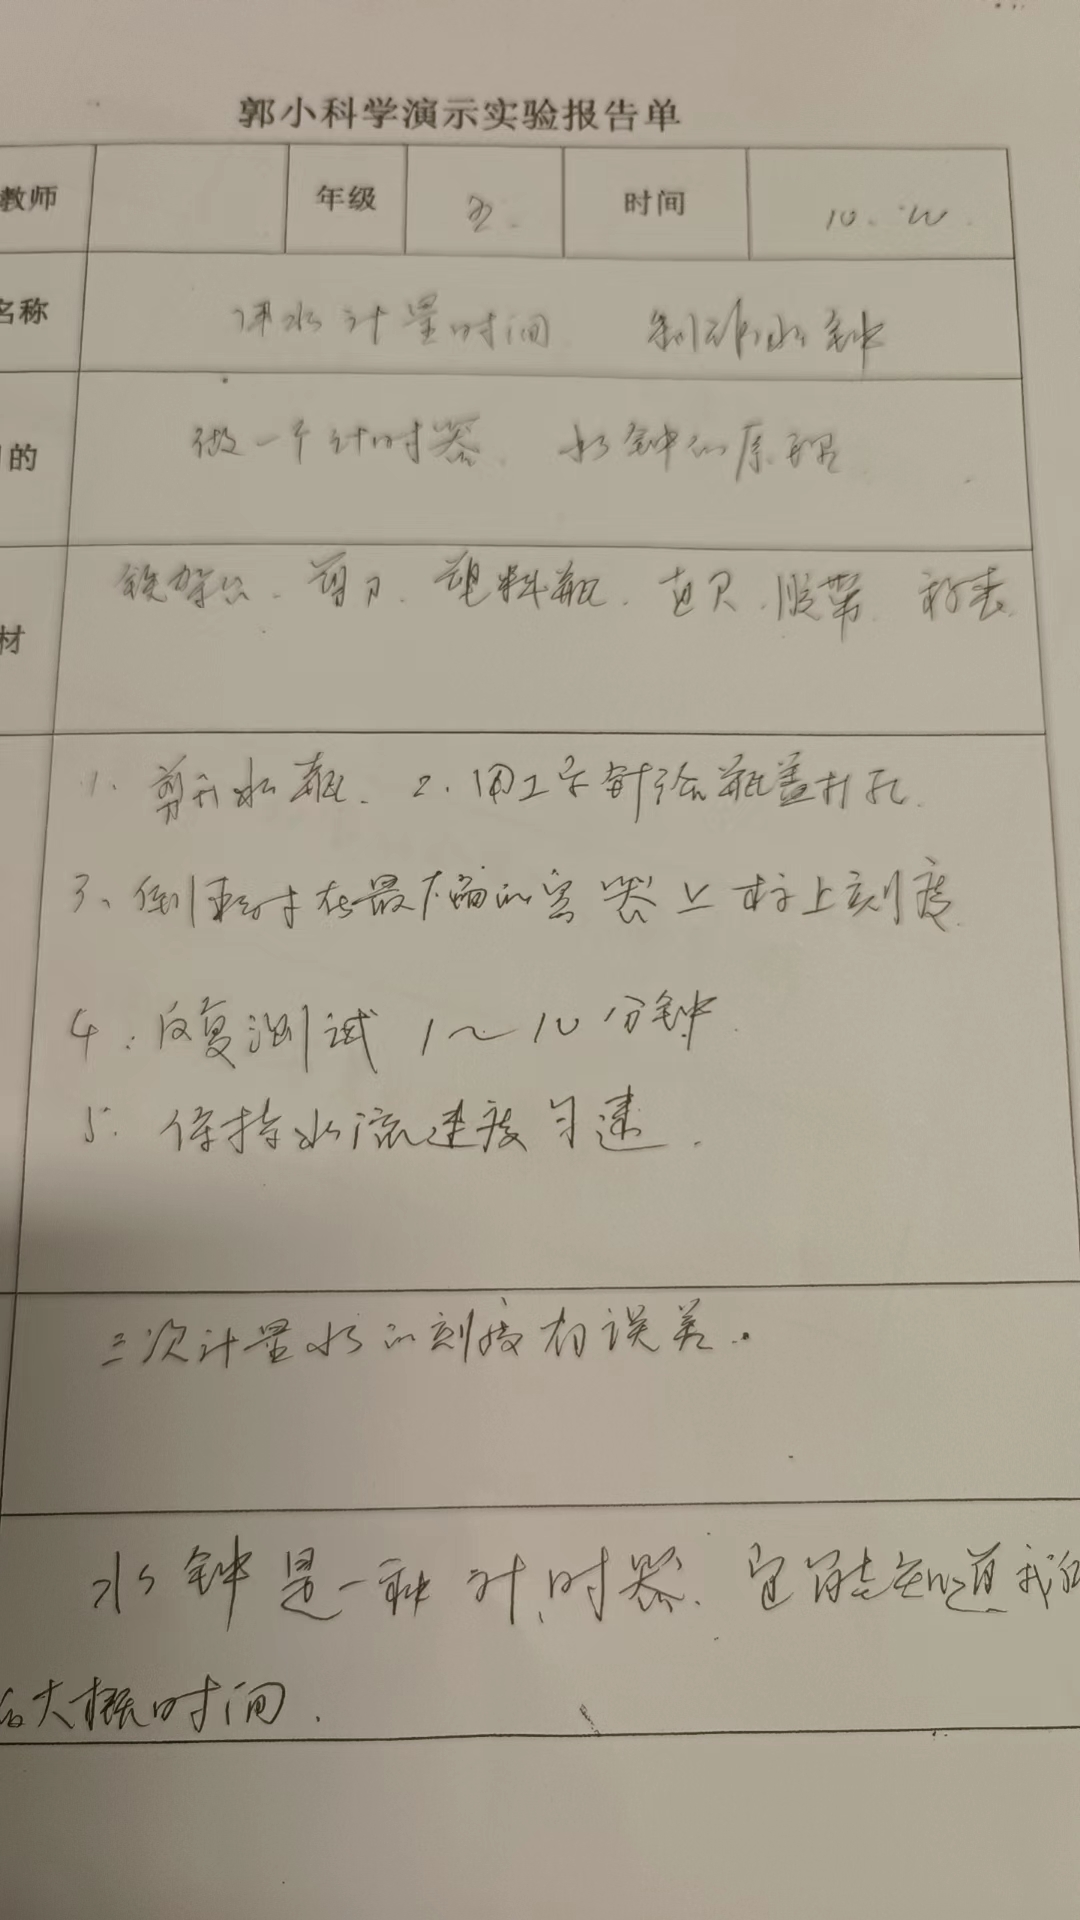 郭小科学演示实验报告单
教师 年级 五. 时间 10.
名称 用水计量时间 制作水钟
的 做一个计时器. 水钟的原理
材 铁架台. 剪刀. 塑料瓶. 直尺. 胶带. 秒表
1. 剪开水瓶. 2. 用工字针给瓶盖打孔.
3、倒 在最下端的容器上标上刻度
4. 反复测试 1~10分钟.
5. 保持水流速度匀速.
三次计量水的刻度有误差.
水钟是一种计时器. 它能知道我们
大概时间.